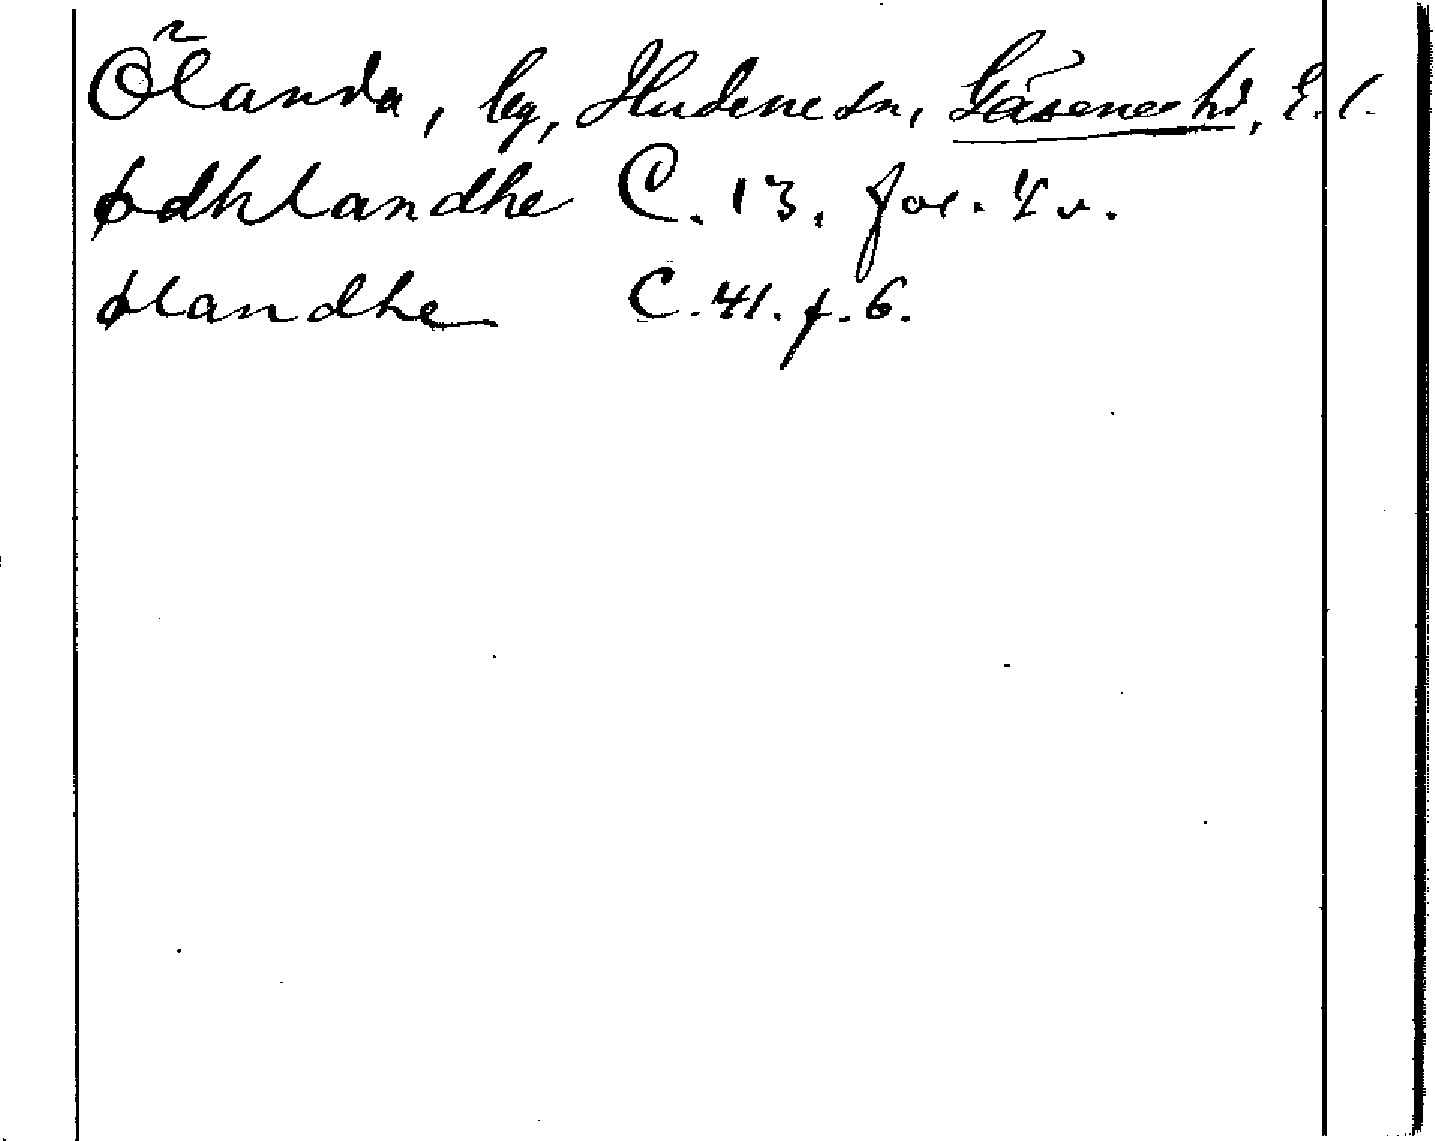 Ölanda, by, Hudene sn, Gäsene hd, E. l.
Ødhlandhe C. 13. fol. 4 v.
Ølandhe C. 41. f. 6.